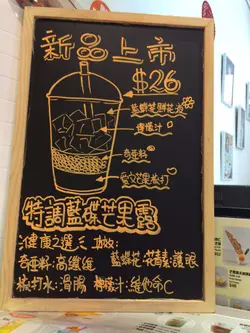 新品上市
$26
藍蝶花鮮花液
檸檬汁
奇亞籽
特調藍蝶芒果露
健康之選三個:
奇亞籽:高纖維
藍蝶花:花青素:護眼
檸檬汁:維他命C